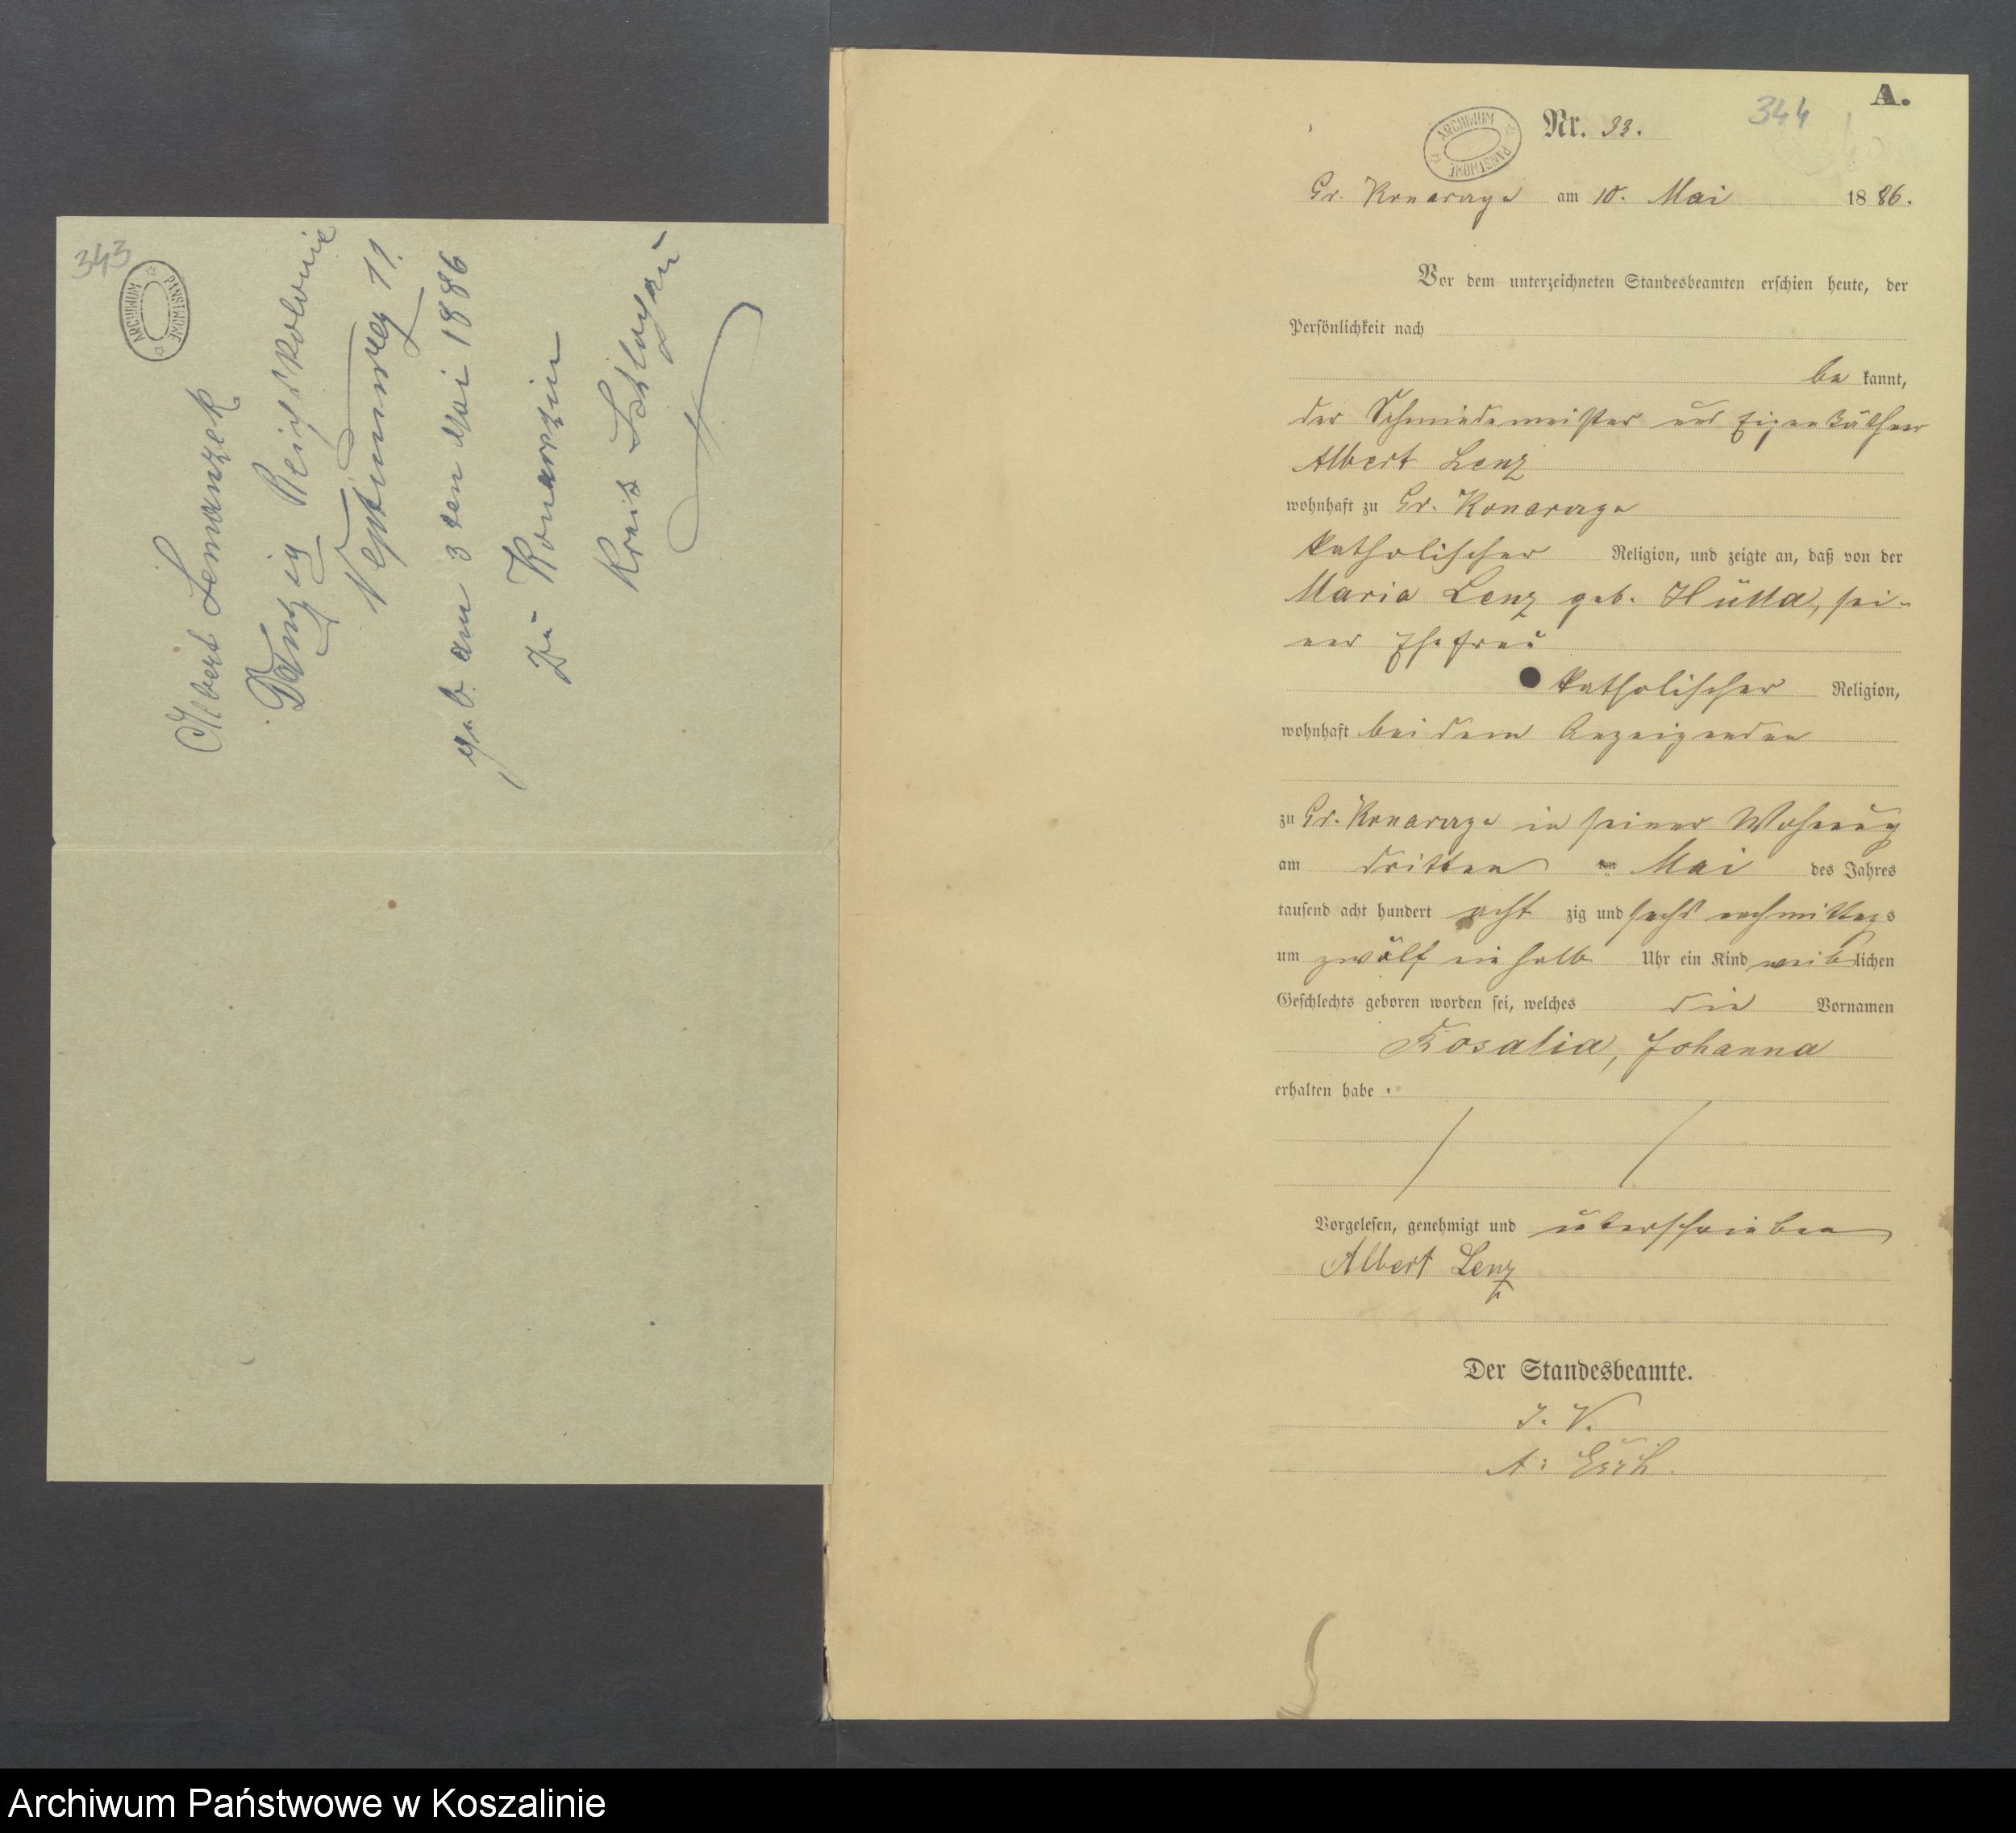 343
ARCHIWUM PAŃSTWOWE
Albert Lemanzek
Danzig Reichskolonie
Neptunweg 11.
geb. am 3ten Mai 1886
zu Konarzin
Kreis Schlochau
A.
344
ARCHIWUM PAŃSTWOWE
Nr. 33.
Gr. Konarczyn am 10. Mai 1886.
Vor dem unterzeichneten Standesbeamten erschien heute, der
Persönlichkeit nach
be kannt,
der Schmiedemeister und Eigenkäthner
Albert Lenz
wohnhaft zu Gr. Konarczyn
katholischer Religion, und zeigte an, daß von der
Maria Lenz geb. Hütta, sei-
ner Ehefrau
katholischer Religion,
wohnhaft bei dem Anzeigenden
zu Gr. Konarczyn in seiner Wohnung
am dritten ten Mai des Jahres
tausend acht hundert acht zig und sechs nachmittags
um zwölf ein halb Uhr ein Kind weiblichen
Geschlechts geboren worden sei, welches die Vornamen
Rosalia, Johanna
erhalten habe.
Vorgelesen, genehmigt und unterschrieben
Albert Lenz
Der Standesbeamte.
I. V.
A:
Archiwum Państwowe w Koszalinie